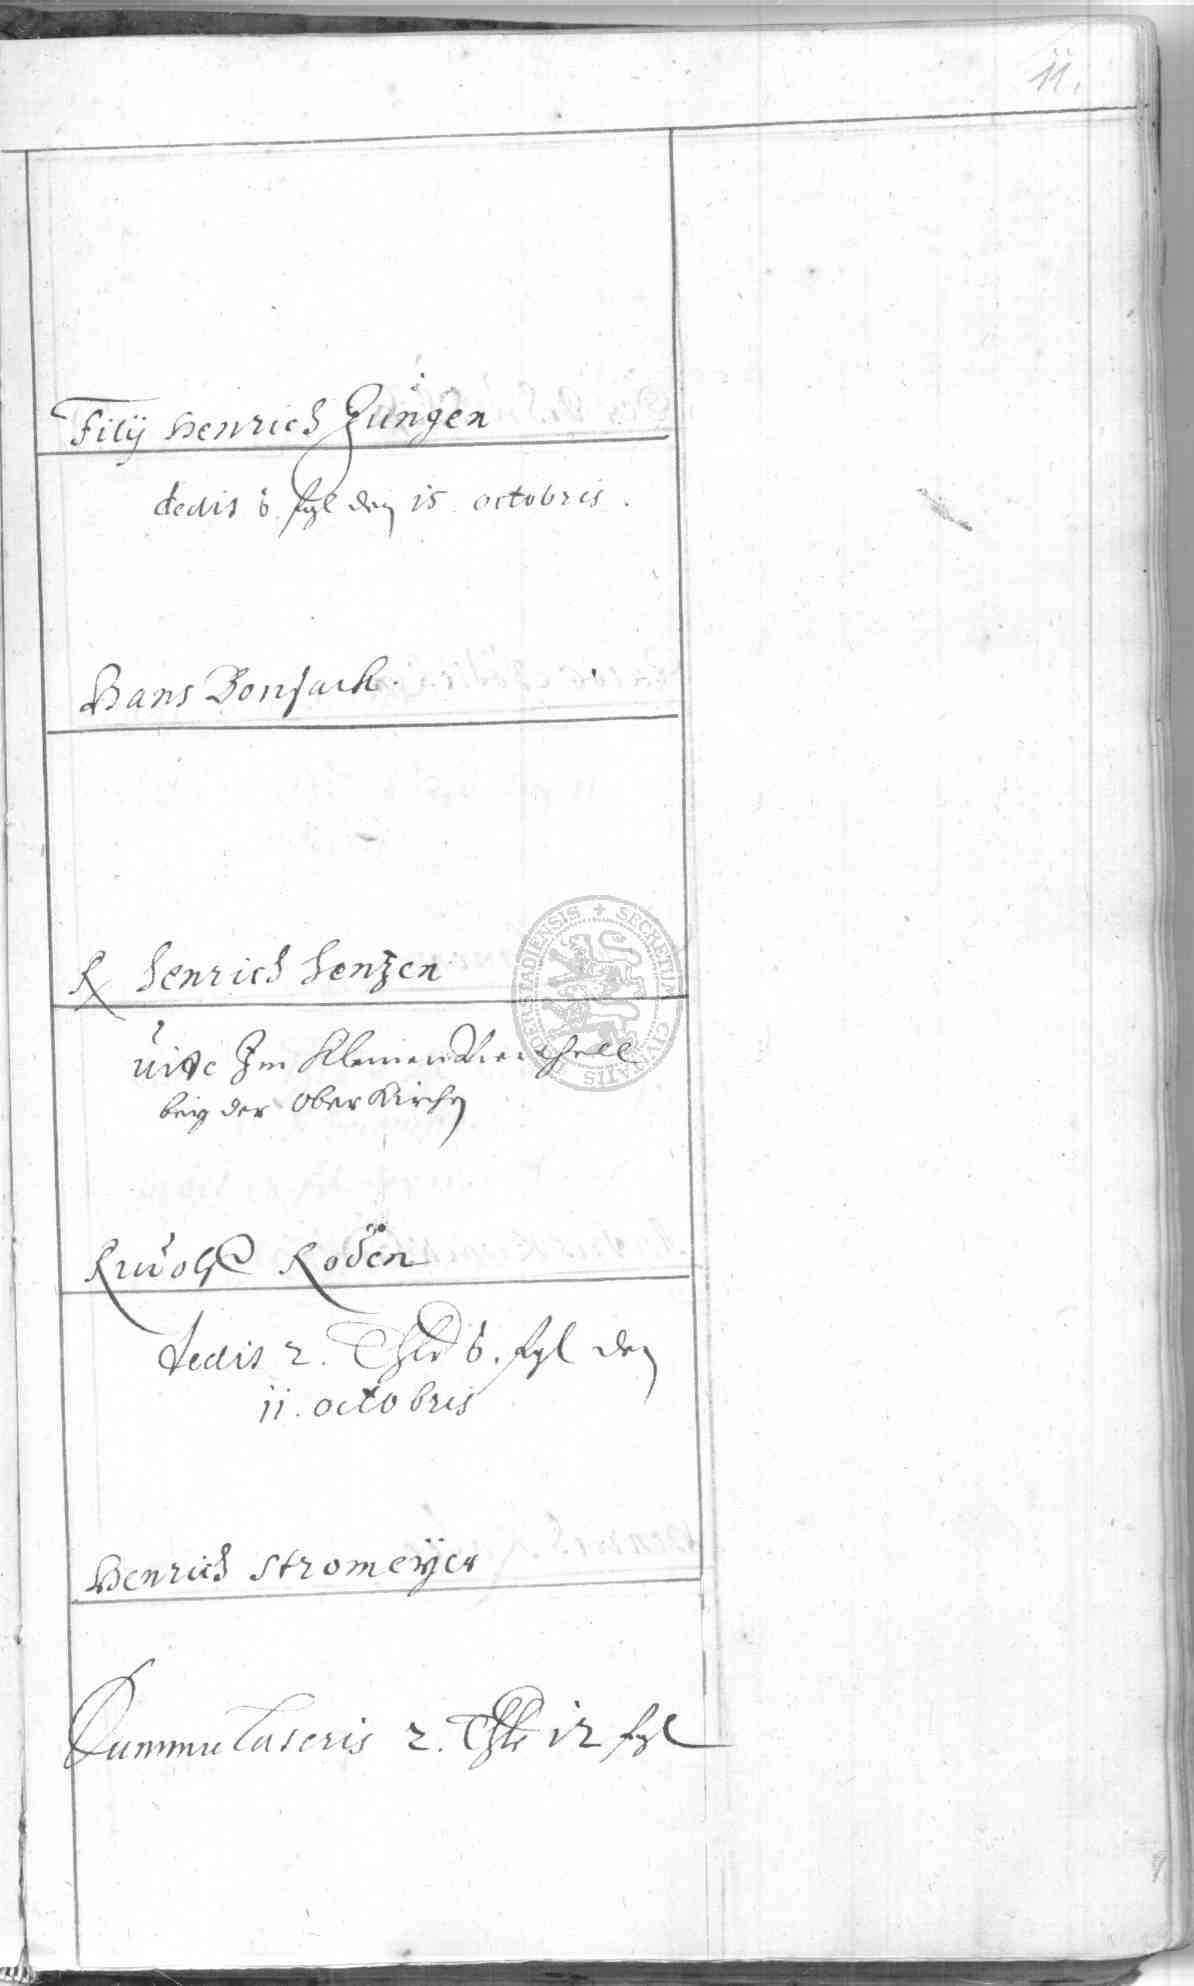 11.
Filij Henrich Jungen
dedit 6. sgl den 15 octobris.
Hans Bonsack.
R Henrich Hentzen
vide Im Kleinen Viertheell
beÿ der Ober Kirchen
Rudolff Roden
dedit 2. Thlr 6. sgl den
11. octobris
Henrich Stromeÿer
Summa lateris 2. Thlr 12 sgl
SECRETUM CIVITATIS DUDERSTADIENSIS